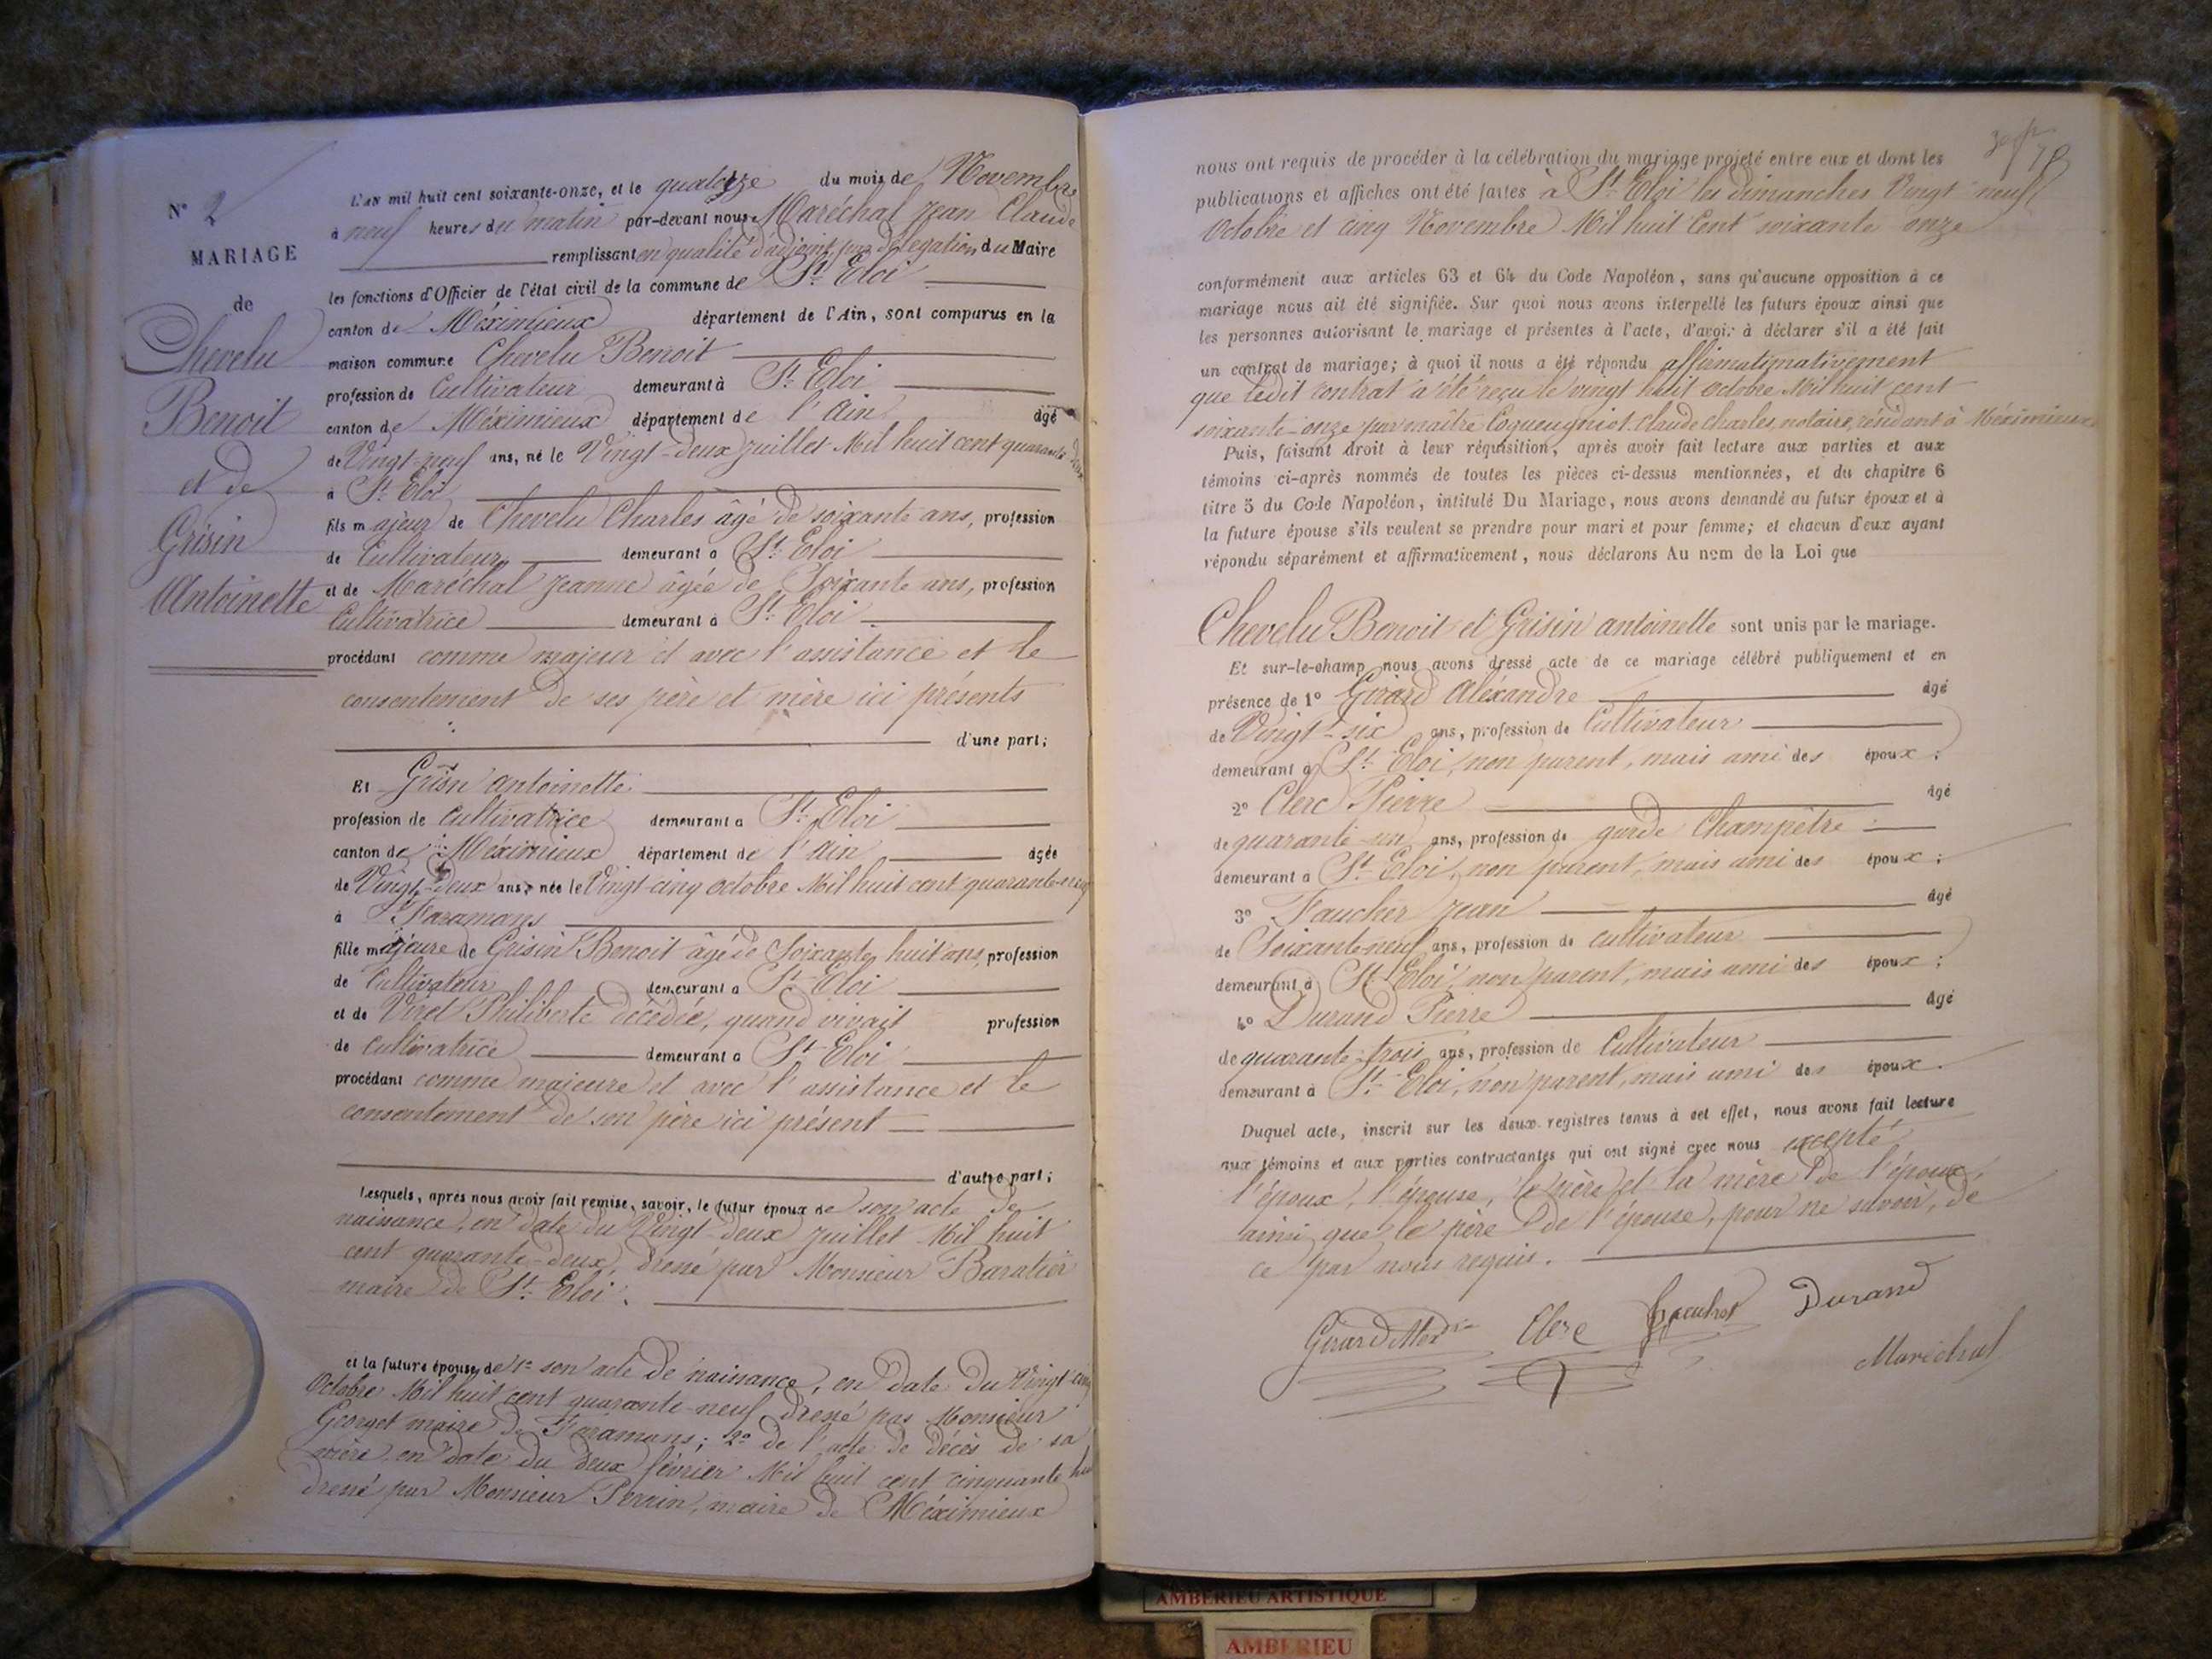 N° 2
MARIAGE
de
Chevelu
Benoit
et de
Grisin
Antoinette
L'an mil huit cent soixante-onze, et le quatorze du mois de Novembre
à neuf heures du matin par-devant nous Maréchal Jean Claude
remplissant en qualité d'adjoint par délégation du Maire
les fonctions d'Officier de l'état civil de la commune de St. Eloi
canton de Méximieux département de l'Ain, sont comparus en la
maison commune Chevelu Benoit
profession de Cultivateur demeurant à St. Eloi
canton de Méximieux département de l'Ain âgé
de Vingt-neuf ans, né le Vingt-deux juillet Mil huit cent quarante deux
à St. Eloi
fils majeur de Chevelu Charles âgé de soixante ans, profession
de Cultivateur demeurant à St. Eloi
et de Maréchal Jeanne âgée de Soixante ans, profession
Cultivatrice demeurant à St. Eloi
procédant comme majeur et avec l'assistance et le
consentement de ses père et mère ici présents
d'une part;
Et Grisin antoinette
profession de Cultivatrice demeurant à St. Eloi
canton de Méximieux département de l'Ain âgée
de Vingt-deux ans, née le Vingt-cinq octobre Mil huit cent quarante-neuf
à Faramans
fille majeure de Grisin Benoit âgé de Soixante huit ans, profession
de Cultivateur demeurant à St. Eloi
et de Viret Philiberte décédée, quand vivait profession
de Cultivatrice demeurant à St. Eloi
procédant comme majeure et avec l'assistance et le
consentement de son père ici présent
d'autre part;
Lesquels, après nous avoir fait remise, savoir, le futur époux de son acte de
naissance, en date du Vingt-deux juillet Mil huit
cent quarante-deux, dressé par Monsieur Baratier
maire de St. Eloi.
et la future épouse, de 1° son acte de naissance, en date du Vingt-cinq
Octobre Mil huit cent quarante-neuf dressé par Monsieur
Georget maire de Faramans; 2° de l'acte de décès de sa
mère, en date du deux février Mil huit cent cinquante
dressé par Monsieur Perrin, maire de Méximieux
nous ont requis de procéder à la célébration du mariage projeté entre eux et dont les
publications et affiches ont été faites à St. Eloi les dimanches Vingt-neuf
Octobre et cinq Novembre Mil huit Cent soixante onze
conformément aux articles 63 et 64 du Code Napoléon, sans qu'aucune opposition à ce
mariage nous ait été signifiée. Sur quoi nous avons interpellé les futurs époux ainsi que
les personnes autorisant le mariage et présentes à l'acte, d'avoir à déclarer s'il a été fait
un contrat de mariage; à quoi il nous a été répondu affirmatimativement
que ledit contrat a été reçu le vingt huit octobre Mil huit cent
soixante-onze par maître Coqueugniot Claude Charles, notaire, résidant à Méximieux
Puis, faisant droit à leur réquisition, après avoir fait lecture aux parties et aux
témoins ci-après nommés de toutes les pièces ci-dessus mentionnées, et du chapitre 6
titre 5 du Code Napoléon, intitulé Du Mariage, nous avons demandé au futur époux et à
la future épouse s'ils veulent se prendre pour mari et pour femme; et chacun d'eux ayant
répondu séparément et affirmativement, nous déclarons Au nom de la Loi que
Chevelu Benoit et Grisin antoinette sont unis par le mariage.
Et sur-le-champ nous avons dressé acte de ce mariage célébré publiquement et en
présence de 1° Girard Aléxandre âgé
de Vingt-six ans, profession de Cultivateur
demeurant à St. Eloi, non parent, mais ami des époux;
2° Clerc Pierre âgé
de quarante-un ans, profession de garde Champêtre
demeurant à St. Eloi, non parent, mais ami des époux;
3° Faucher Jean âgé
de Soixante-neuf ans, profession de cultivateur
demeurant à St. Eloi, non parent, mais ami des époux;
4° Durand Pierre âgé
de quarante-trois ans, profession de Cultivateur
demeurant à St. Eloi, non parent, mais ami des époux.
Duquel acte, inscrit sur les deux registres tenus à cet effet, nous avons fait lecture
aux témoins et aux parties contractantes qui ont signé avec nous excepté
l'époux, l'épouse, le père et la mère de l'époux,
ainsi que le père de l'épouse, pour ne savoir, de
ce par nous requis.
Girard Alexdre Clerc Faucher Durand
Maréchal
AMBERIEU ARTISTIQUE
AMBERIEU